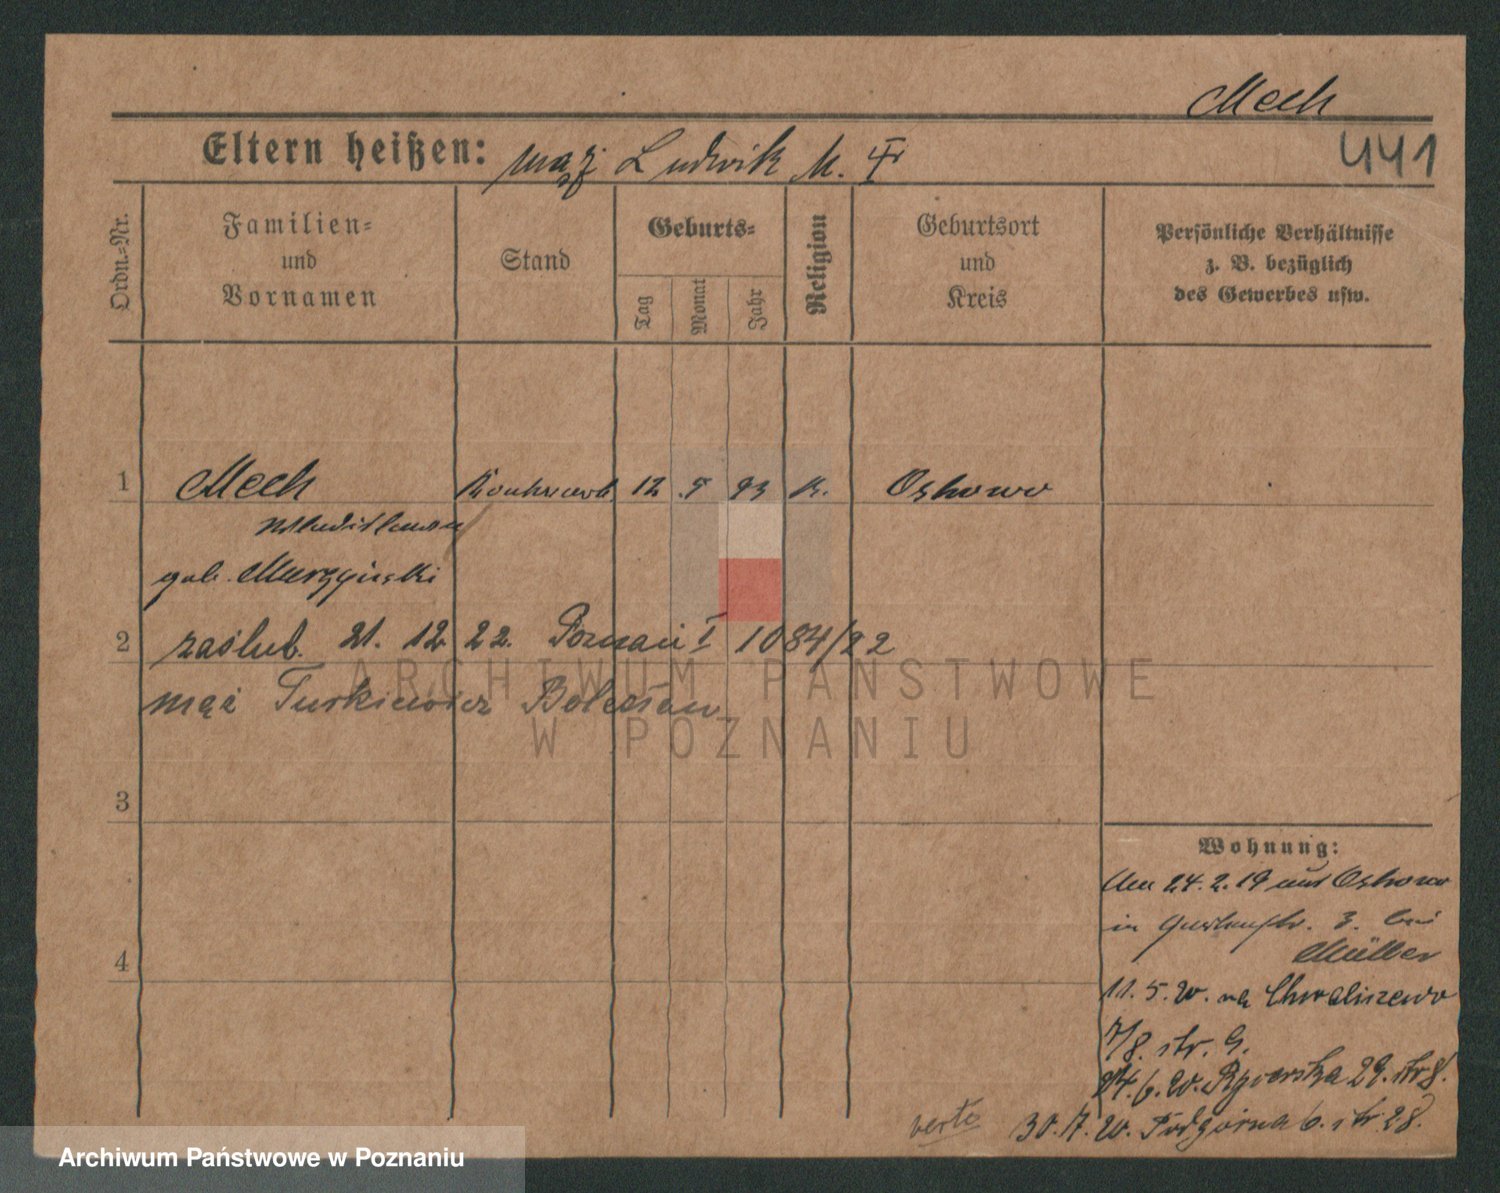 Mech
441
Eltern heißen: mąż Ludwik M.
Ordn.=Nr.
Familien= und Vornamen
Stand
Geburts=
Tag
Monat
Jahr
Religion
Geburtsort und Kreis
Persönliche Verhältnisse z. B. bezüglich des Gewerbes usw.
1 Mech 12 93 K.
gab. Murzynski
2 zaślub. 21. 12 22. Poznań I 1084/22
mąż Turkiewicz Bolesław
3
4
Wohnung:
Am 24.2.19 aus
in 3. bei
Müller
11.5.20. na Chwaliszewo
7/8. str. 9.
24.6.20. 29. str 8.
verte
30.7.20. Podgórna 6. str. 28.
ARCHIWUM PAŃSTWOWE
W POZNANIU
Archiwum Państwowe w Poznaniu